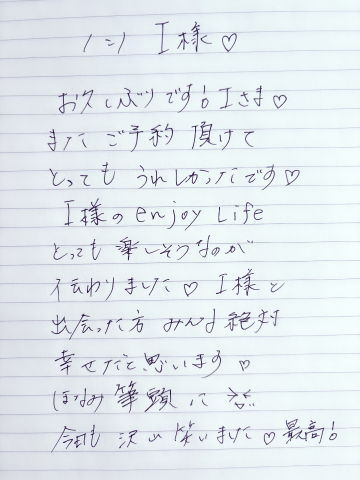 I様♡
お久しぶりです! Iさま♡
またご予約頂けて
とってもうれしかったです♡
I様のenjoy Life
とっても楽しそうなのが
伝わりました♡ I様と
出会った方みんな絶対
幸せだと思います♡
ほなみ筆頭に
今日も沢山笑いました♡最高!